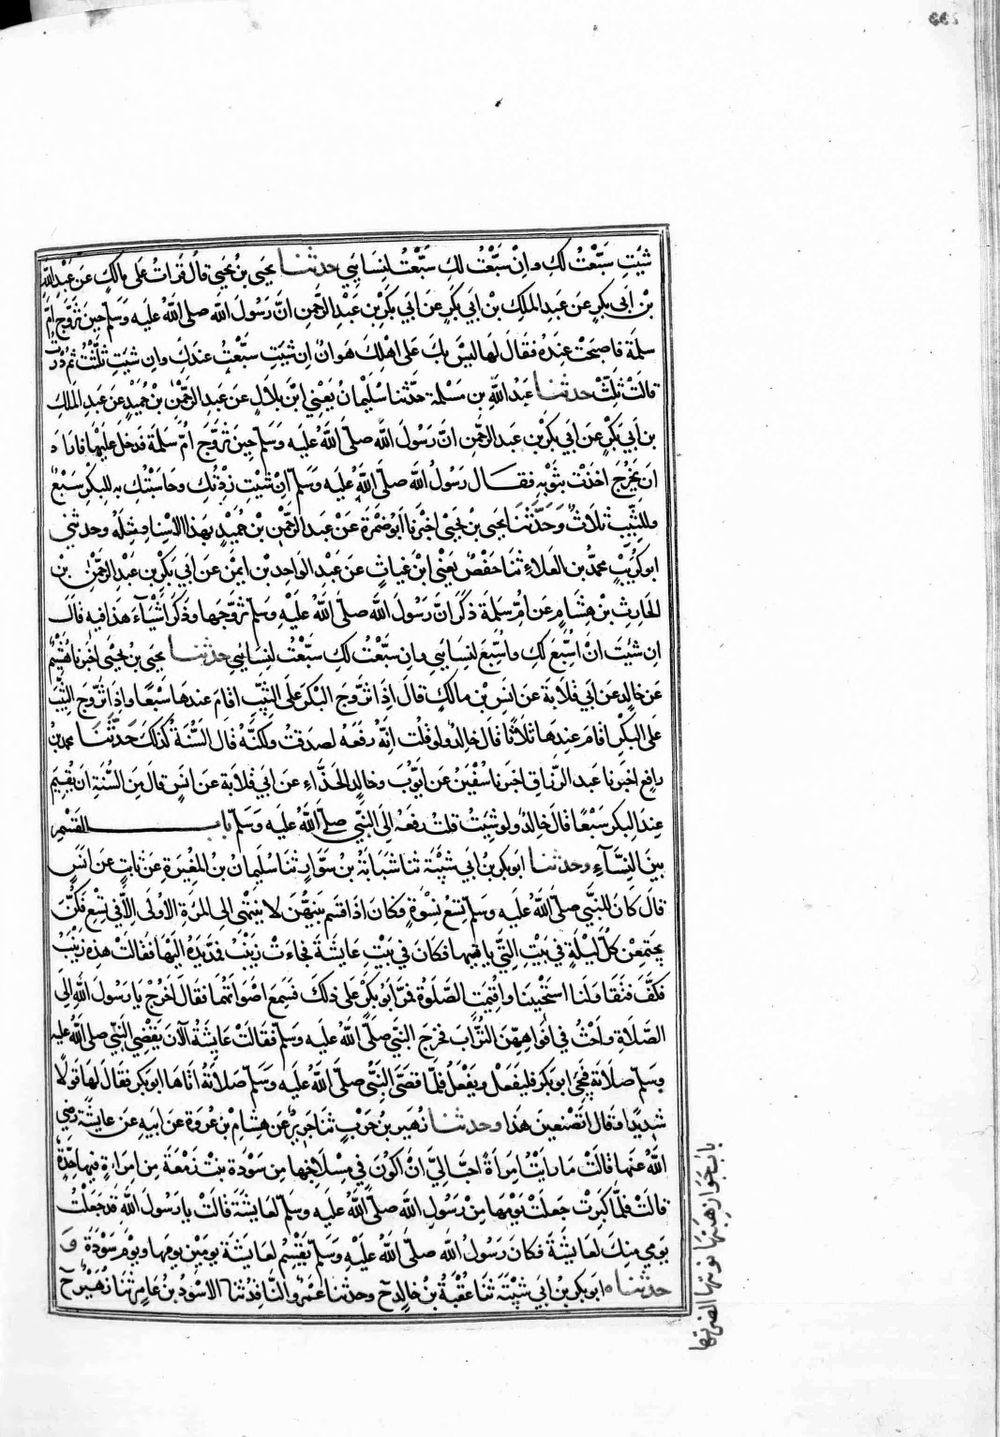 شِئْتِ سَبَّعْتُ لَكِ وَاِنْ سَبَّعْتُ لَكِ سَبَّعْتُ لِنِسَايِي حدثنا يحيى بن يحيى قال قرات على مالك عن عبد الله
بن ابى بكر عن عبد الملك بن ابي بكر عن ابي بكر بن عبد الرحمن ان رسول الله صلى الله عليه وسلم حين تزوج ام
سلمة فاصبحت عنده فقال لها ليس بك على اهلك هوان ان شيت سبعت عندك وان شيت ثلثت ثم درت
قالت ثلث حدثنا عبد الله بن مسلمة حدثنا سليمان يعني ابن بلال عن عبد الرحمن بن حميد عن عبد الملك
بن ابي بكر عن ابي بكر بن عبد الرحمن ان رسول الله صلى الله عليه وسلم حين تزوج ام سلمة فدخل عليها فاراد
ان يخرج اخذت بثوبه فقال رسول الله صلى الله عليه وسلم ان شيت زدتك وحاسبتك به للبكر سبع
وللثيب ثلاث وحدثنا يحيى بن يحيى اخبرنا ابو ضمرة عن عبد الرحمن بن حميد بهذا الاسناد مثله وحدثني
ابو كريب محمد بن العلاء ثنا حفص يعني ابن غياث عن عبد الواحد بن ايمن عن ابي بكر بن عبد الرحمن بن
الحارث بن هشام عن ام سلمة ذكر ان رسول الله صلى الله عليه وسلم تزوجها وذكر اشياء هذا فيه قال
ان شيت ان اسبع لك واسبع لنسايي وان سبعت لك سبعت لنسايي حدثنا يحيى بن يحيى اخبرنا هشيم
عن خالد عن ابي قلابة عن انس بن مالك قال اذا تزوج البكر على الثيب اقام عندها سبعا واذا تزوج الثيب
على البكر اقام عندها ثلاثا قال خالد ولو قلت انه رفعه لصدقت ولكنه قال السنة كذلك حدثنا محمد بن
رافع اخبرنا عبد الرزاق اخبرنا سفين عن ايوب وخالد الحذاء عن ابي قلابة عن انس قال من السنة ان يقيم
عند البكر سبعا قال خالد ولو شيت قلت رفعه الى النبي صلى الله عليه وسلم باب القسم
بين النساء وحدثنا ابو بكر بن ابي شيبة ثنا شبابة بن سوار ثنا سليمان بن المغيرة عن ثابت عن انس
قال كان للنبي صلى الله عليه وسلم تسع نسوة وكان اذا قسم بينهن لا ينتهى الى المرة الاولى الا في تسع فكن
يجتمعن كل ليلة في بيت التي ياتيها فكان في بيت عايشة فجاءت زينب فمد يده اليها فقالت هذه زينب
فكف فتقاولتا استخبتا واقيمت الصلوة فمر ابو بكر على ذلك فسمع اصواتهما فقال اخرج يا رسول الله الى
الصلاة واحث في افواههن التراب فخرج النبي صلى الله عليه وسلم فقالت عايشة الآن يقضي النبي صلى الله عليه
وسلم صلاته فيجئ ابو بكر فليفعل ويفعل فلما قضى النبي صلى الله عليه وسلم صلاته اتاها ابو بكر فقال لها قولا
شديدا وقال اتصنعين هذا وحدثنا زهير بن حرب ثنا جرير عن هشام بن عروة عن ابيه عن عايشة رضي
الله عنها قالت ما رايت امراة احب الي ان اكون في مسلاخها من سودة بنت زمعة من امراة فيها حدة
قالت فلما كبرت جعلت يومها من رسول الله صلى الله عليه وسلم لعايشة قالت يا رسول الله قد جعلت
يومي منك لعايشة فكان رسول الله صلى الله عليه وسلم يقسم لعايشة يومين يومها ويوم سودة و
حدثنا ابو بكر بن ابي شيبة ثنا عقبة بن خالد ح وحدثنا عمرو الناقد ثنا الاسود بن عامر ثنا زهير ح
باب جواز هبتها نوبتها لضرتها